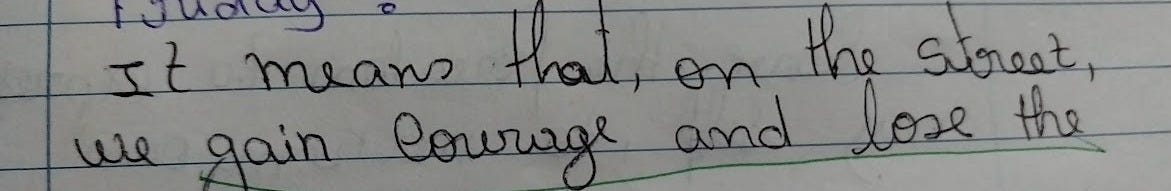 It means that, on the street,
we gain courage and lose the